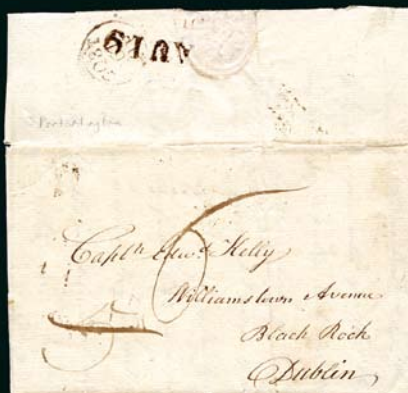 AU19
Portarlington
6
5
Captn Edwd Kelly
Williamstown Avenue
Black Rock
Dublin